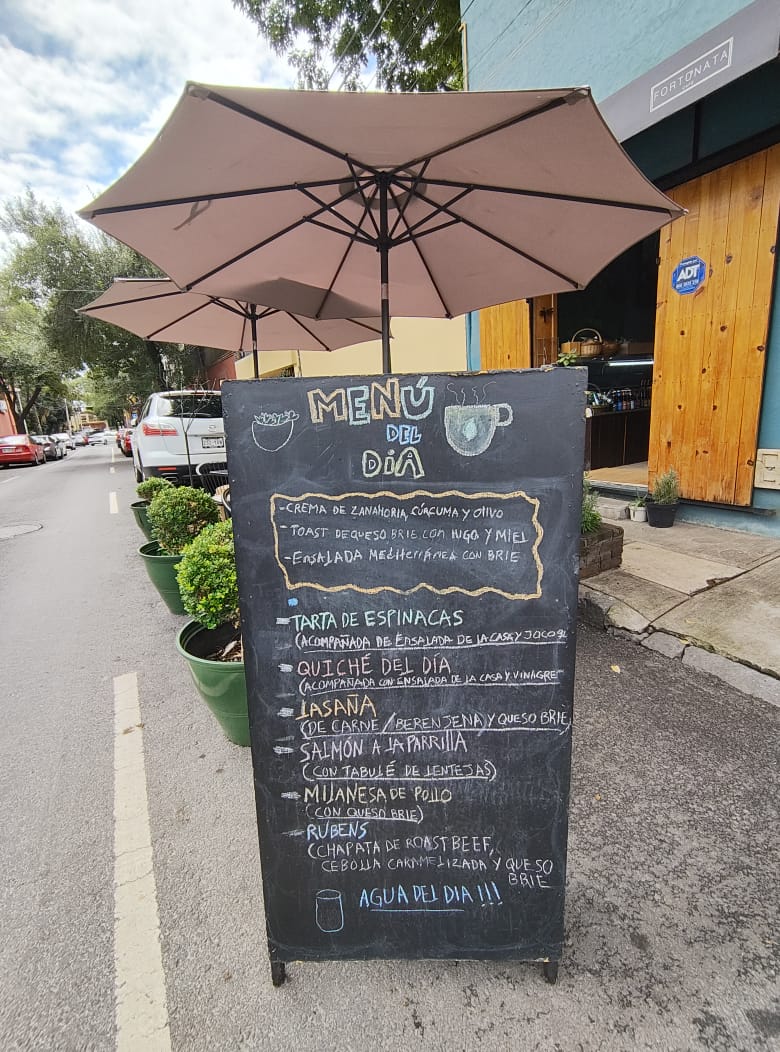 FORTONATA
ADT
MENÚ
DEL
DÍA
-CREMA DE ZANAHORIA, CÚRCUMA Y OLIVO
-TOAST DE QUESO BRIE CON HIGO Y MIEL
-ENSALADA MEDITERRÁNEA CON BRIE
TARTA DE ESPINACAS
(ACOMPAÑADA DE ENSALADA DE LA CASA Y JOCOQ
QUICHÉ DEL DÍA
(ACOMPAÑADA CON ENSALADA DE LA CASA Y VINAGRE
LASAÑA
(DE CARNE/BERENJENA Y QUESO BRIE)
SALMÓN A LA PARRILLA
(CON TABULÉ DE LENTEJAS)
MILANESA DE POLLO
(CON QUESO BRIE)
RUBENS
(CHAPATA DE ROAST BEEF,
CEBOLLA CARAMELIZADA Y QUESO
BRIE
AGUA DEL DIA!!!